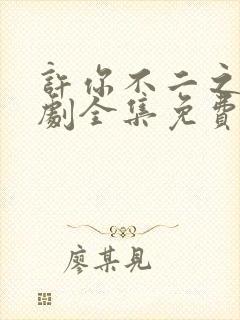 許你不二之
劇全集免費
廖某見